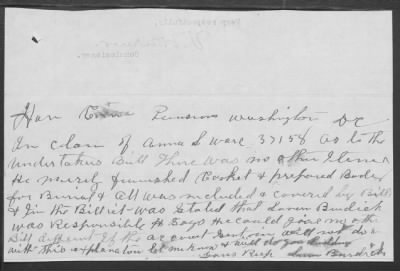 Very respectfully,
Commissioner.
Hon Pensions Washington DC
In claim of Anna S Ware 37158 as to the
undertakers Bill There was no other Items
He merely furnished Casket & prepared Body
for Burial & All was included & covered by Bill
& In the Bill it was Stated that Burdick
was Responsible He Says He could give no other
Bill different If the account sent in will not do
with this explanation let me know & will do
Yours Resp Burdick